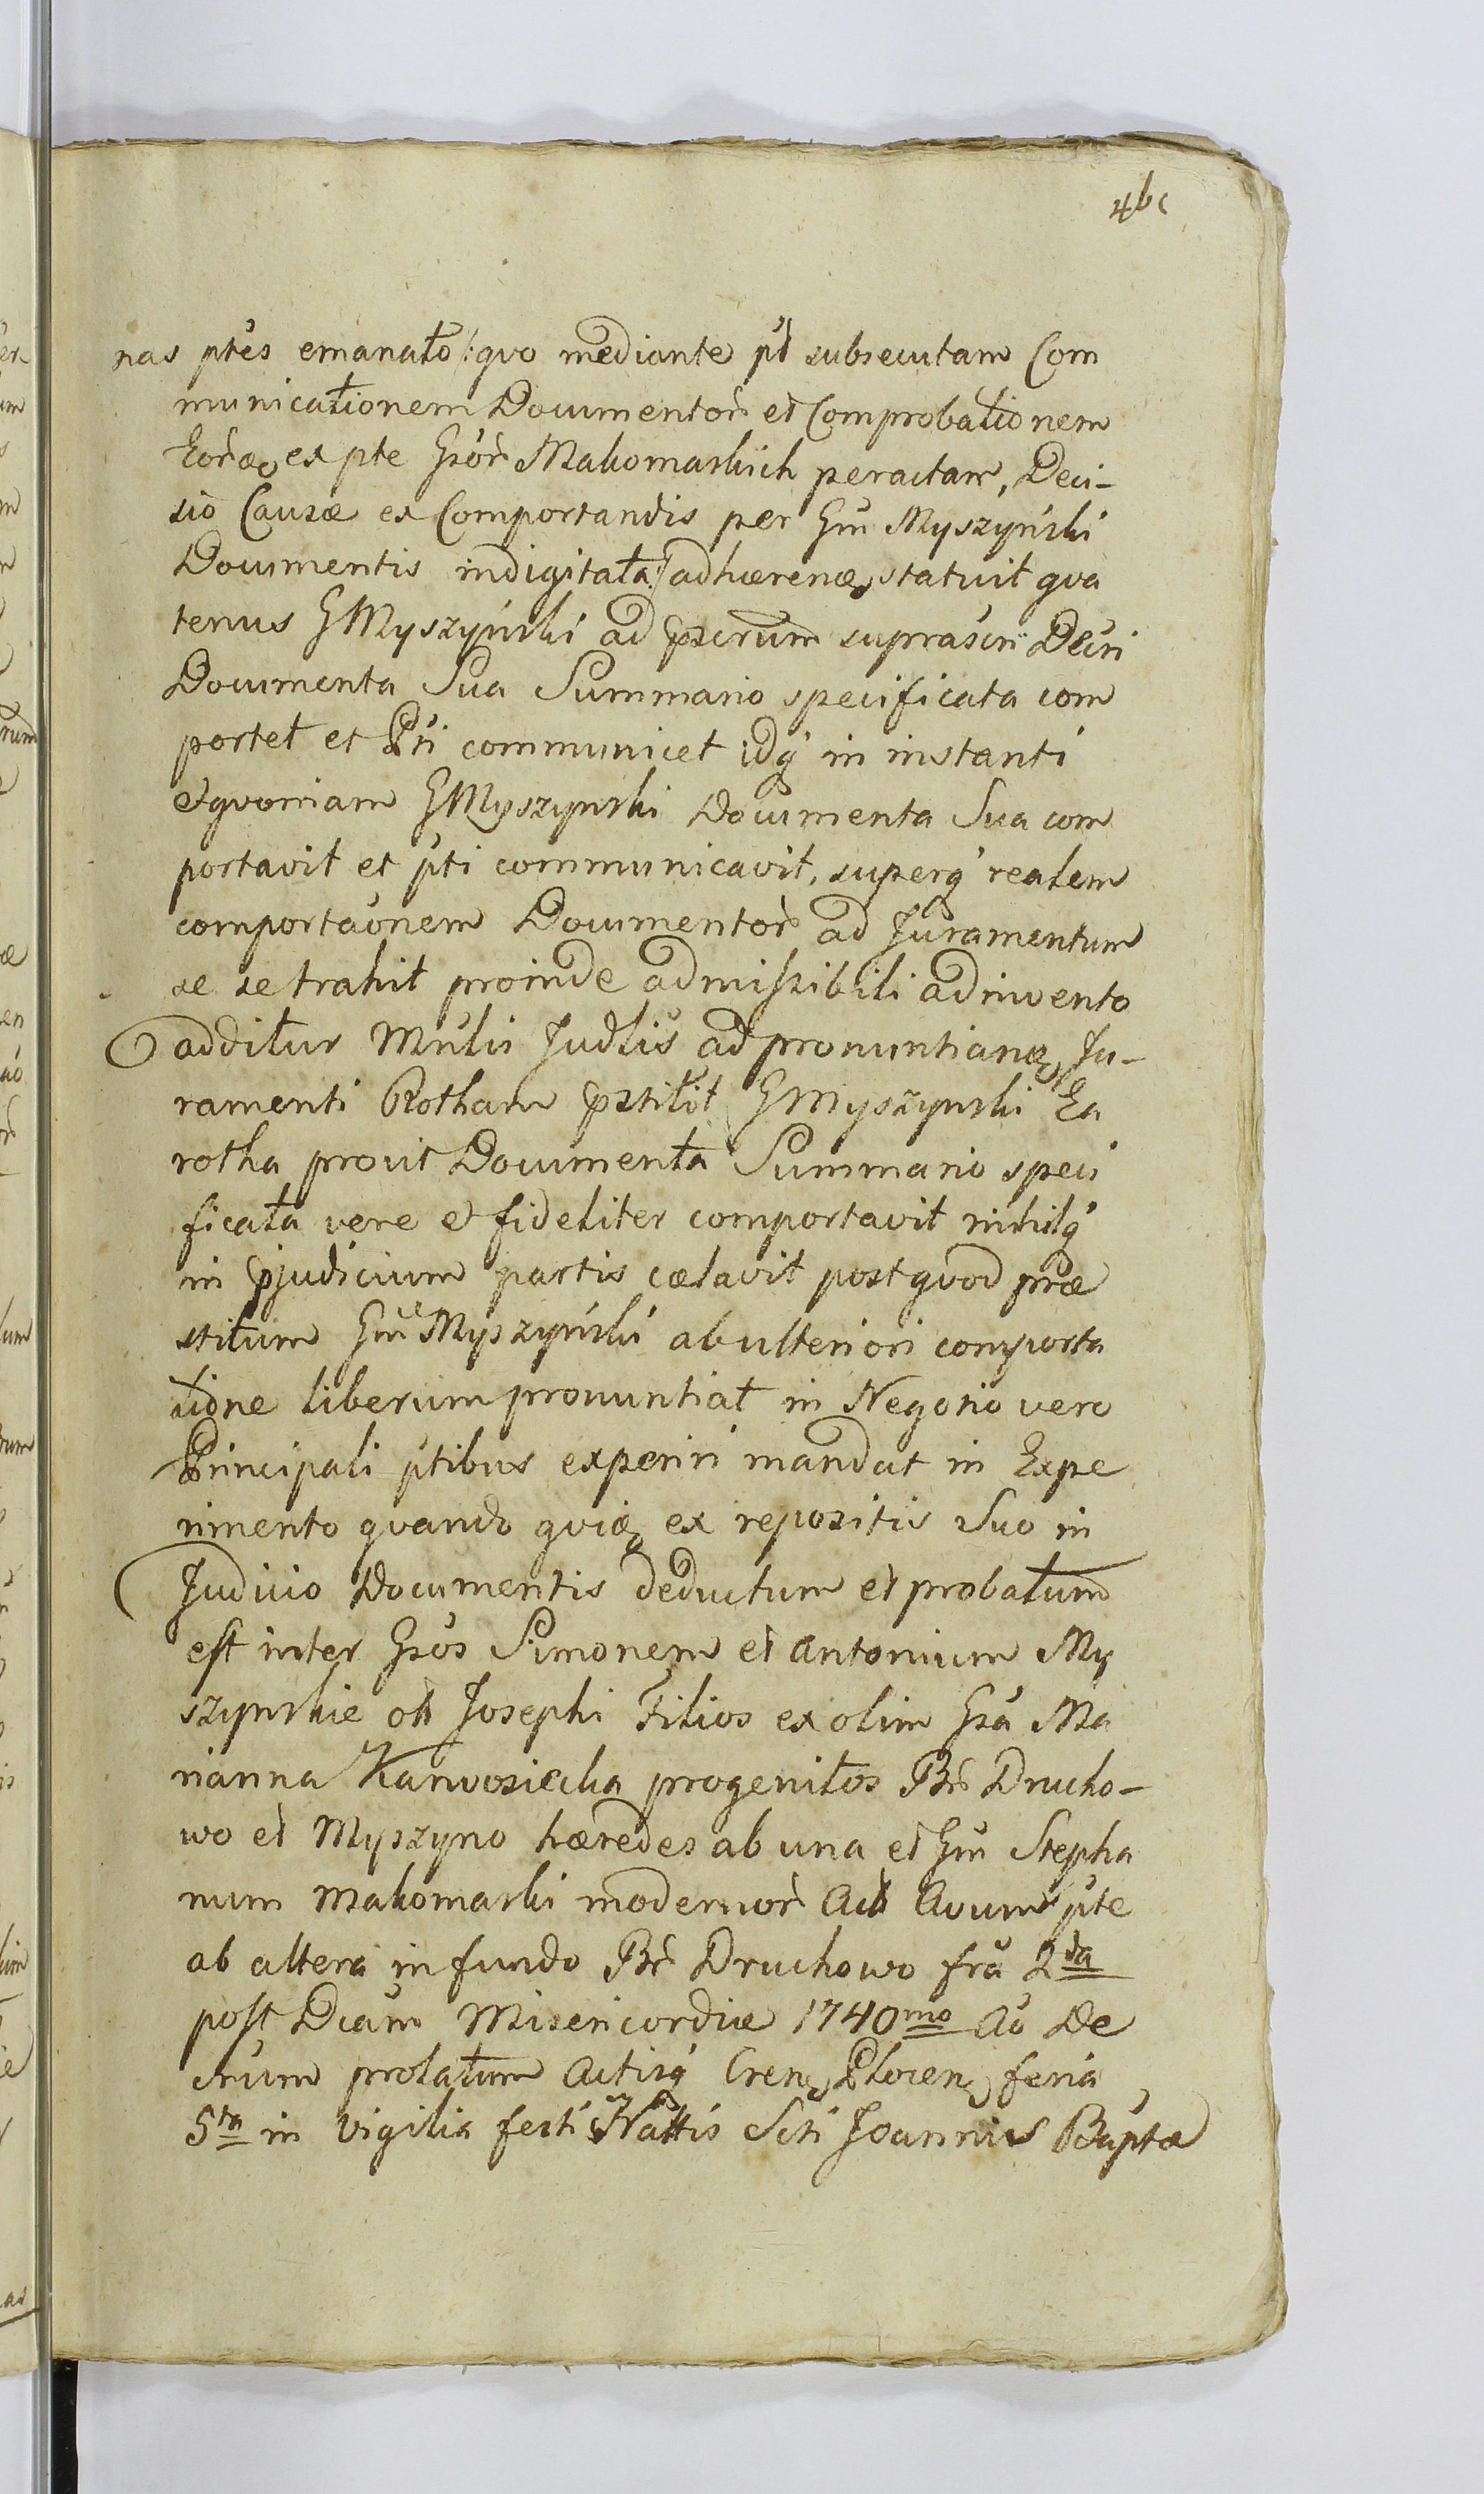 nas ptes emanato /: qvo mediante pt subsecutam Com
municationem Documentor et Comprobationem
ex pte Gsor Makomaskich peractam, Deci-
sio Causæ ex Comportandis per Gm Myszyński
Documentis indigitata :/ adhærenꝫ statuit qva
tenus G Myszyński ad suprascri Decri
Documenta Sua Summario specificata com
portet et Pti communicet idq in instanti
et qvoniam G Myszynski Documenta Sua com
portavit et pti communicavit, superq realem
comportaonem Documentor ad Juramentum
se se trahit proinde admissibili adinvento
additur Mnlis Judlis ad pronuntianꝫ Ju-
ramenti Rotham pstitit G Myszynski Ea
rotha prout Documenta Summario speci
ficata vere et fideliter comportavit nihilq
in pjudicium partis cælavit post qvod præ
stitum Gm Myszyński ab ulteriori comporta
tione liberum pronuntiat in Negotio vero
Principali ptibus experiri mandat in Expe
rimento qvando qvidꝫ ex repositis Suo in
Judicio Documentis deductum et probatum
est inter Gsos Simonem et Antonium My
szynskie olr Josephi Filios ex olim Gsa Ma
rianna Karwosiecka progenitos Br Drucho-
wo et Myszyno hæredes ab una et Gm Stepha
num Makomaski modernor Act Avum pte
ab altera in fundo Br Druchowo fra 2da
post Dcam Misericordiæ 1740mo Ao De
crum prolatum Actisq Cren Plocen feria
5ta in Vigilia festi Nattis Scti Joannis Baptæ